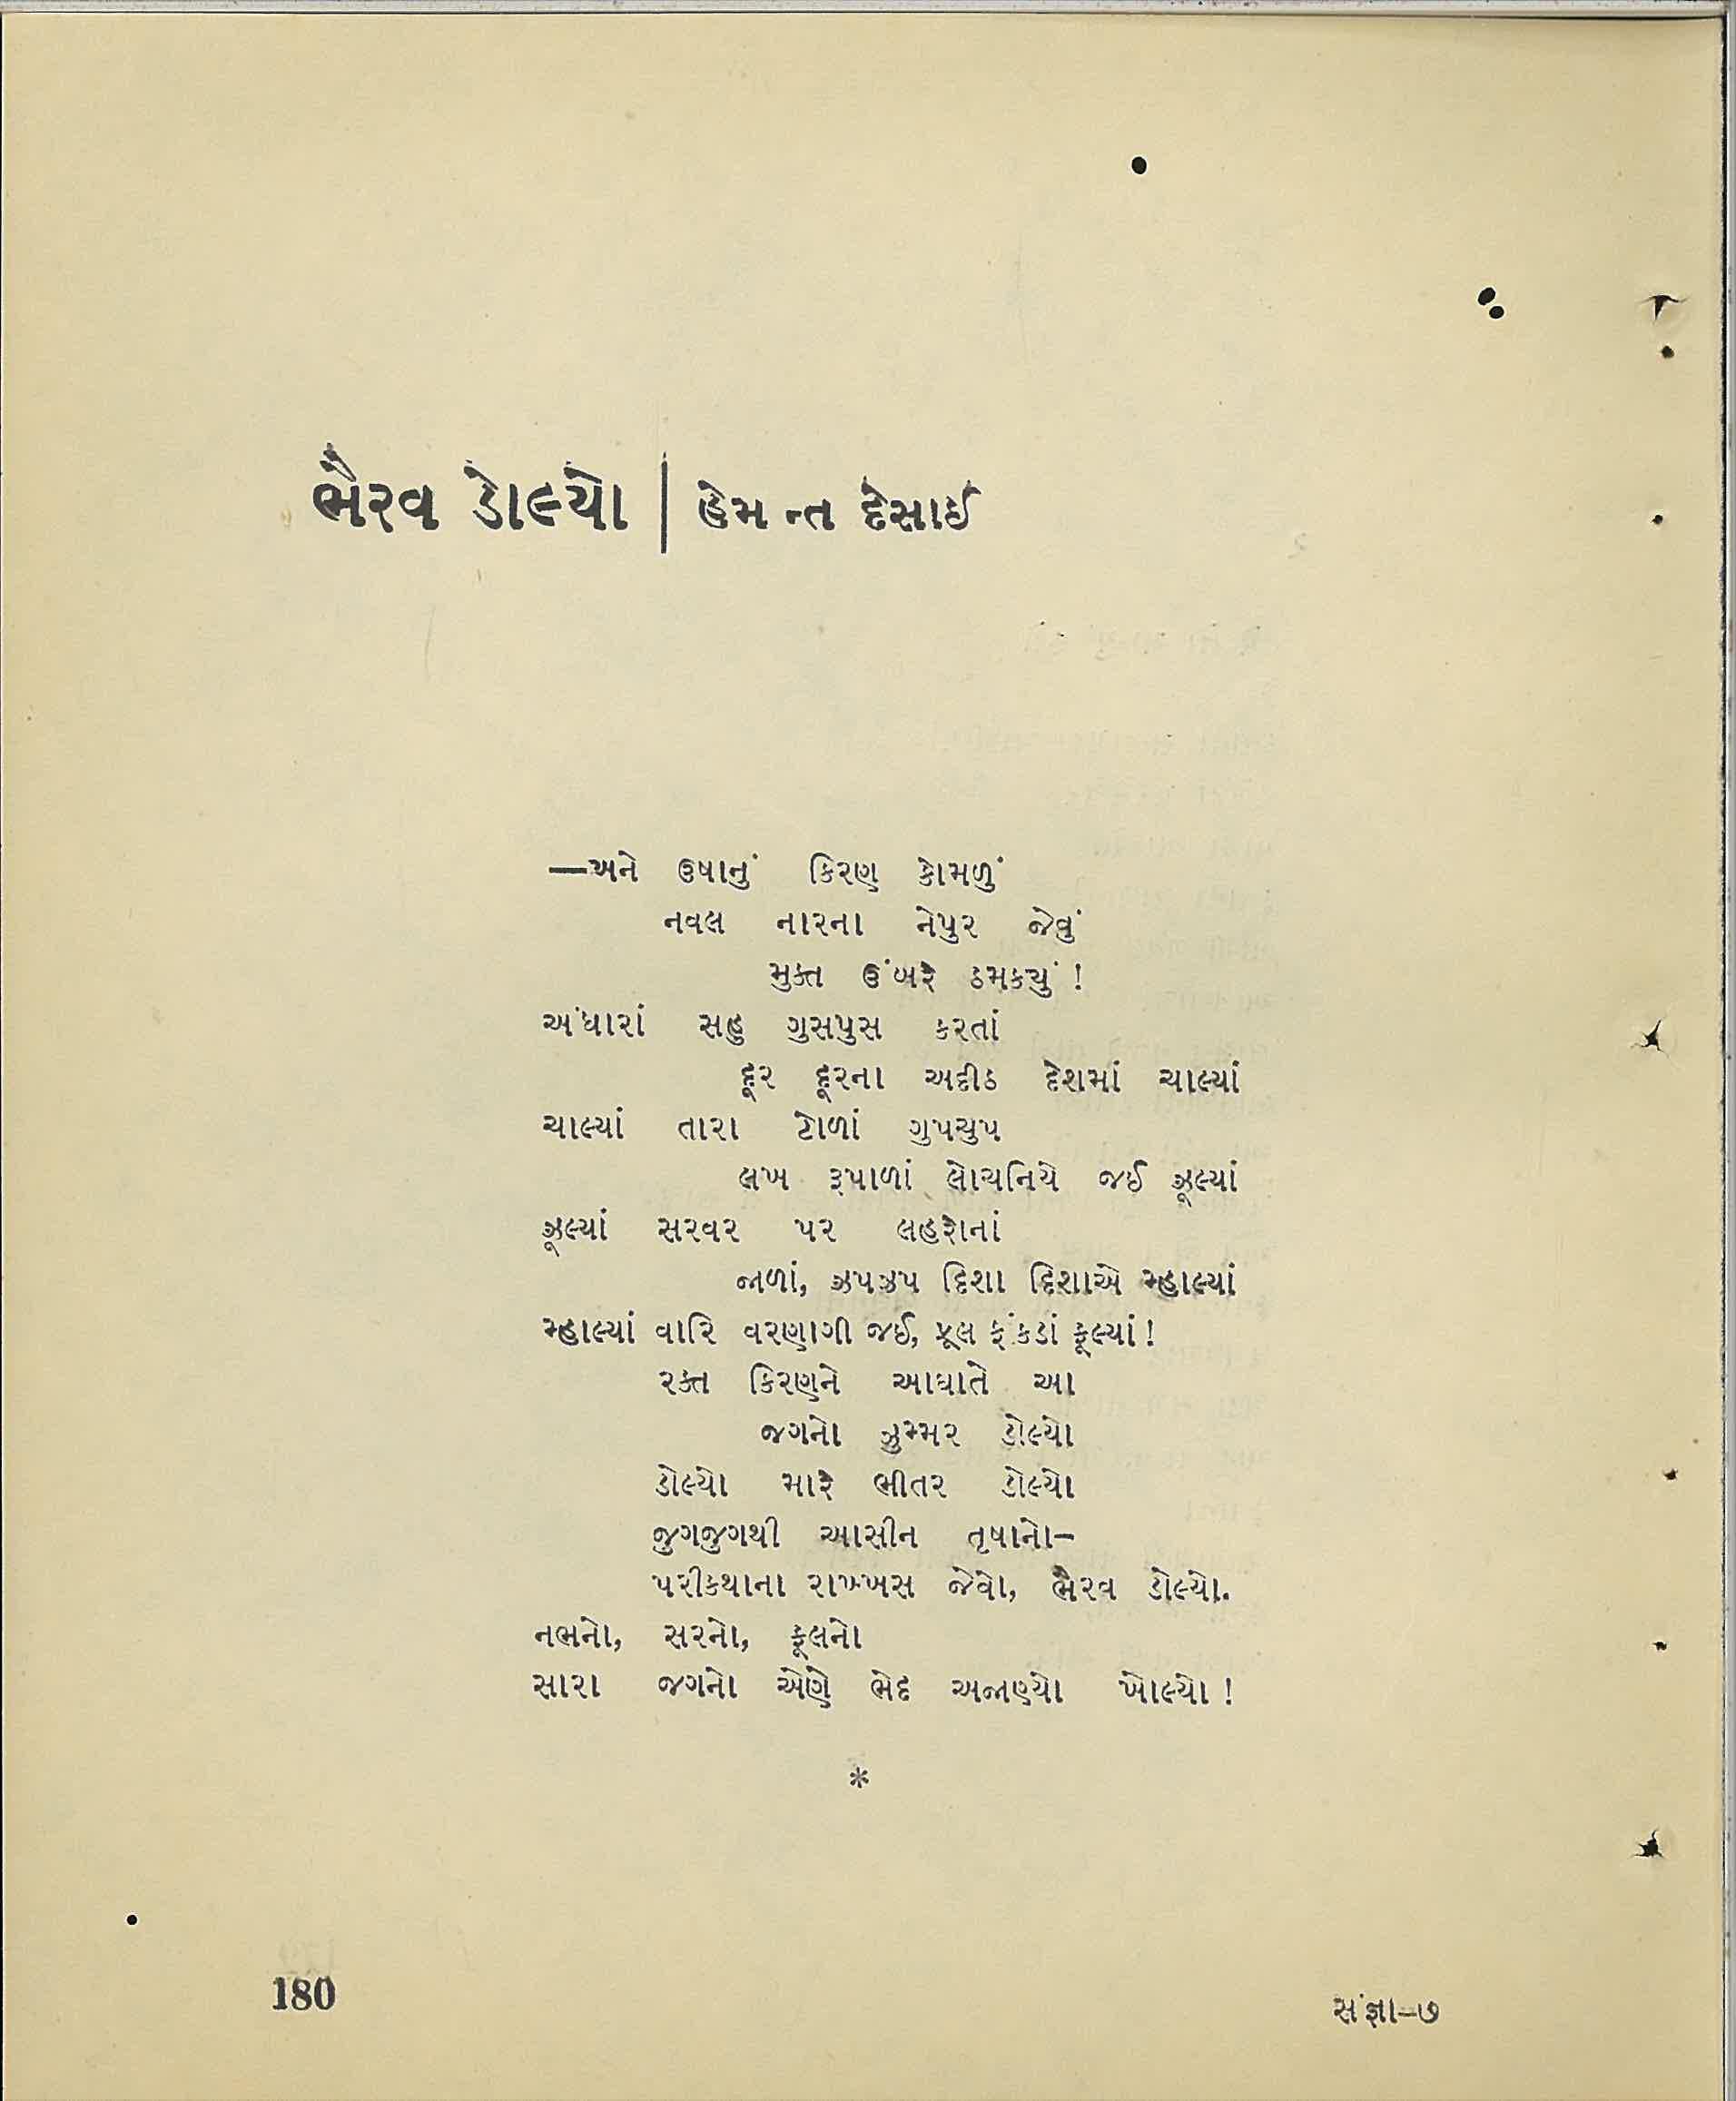 ભૈરવ ડોલ્યો | હેમન્ત દેસાઈ
—અને ઉષાનું કિરણ કોમળું
નવલ નારના નેપુર જેવું
મુક્ત ઉંબરે ઠમકયું !
અંધારાં સહુ ગુસપુસ કરતાં
દૂર દૂરના અદીઠ દેશમાં ચાલ્યાં
ચાલ્યાં તારા ટોળાં ગુપચુપ
લખ રૂપાળાં લોચનિયે જઈ ઝૂલ્યાં
ઝૂલ્યાં સરવર પર લહરોનાં
જાળાં, ઝપઝપ દિશા દિશાએ મ્હાલ્યાં
મ્હાલ્યાં વારિ વરણાગી જઈ, ફૂલ ફંકડાં ફૂલ્યાં !
રક્ત કિરણને આઘાતે આ
જગનો ઝુમ્મર ડોલ્યો
ડોલ્યો મારે ભીતર ડોલ્યો
જુગજુગથી આસીન તૃષાનો–
પરીકથાના રાખ્ખસ જેવો, ભૈરવ ડોલ્યો.
નભનો, સરનો, ફૂલનો
સારા જગનો એણે ભેદ અજાણ્યો ખોલ્યો !
*
180
સંજ્ઞા–૭